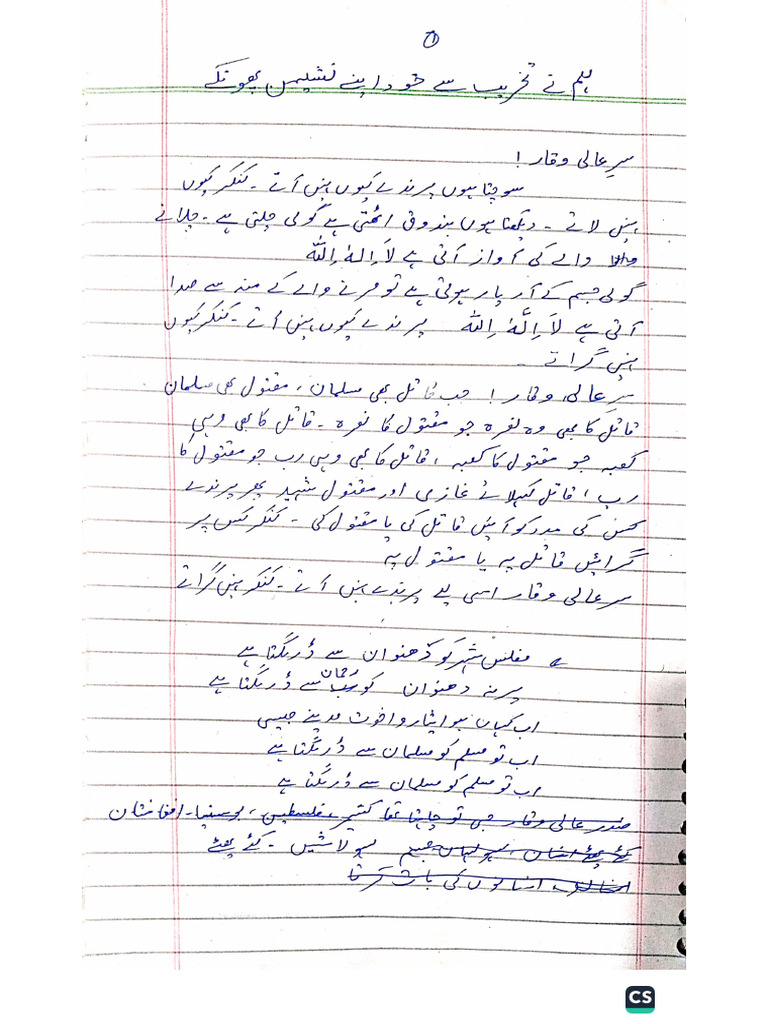 ①
ہم نے تخریب سے خود اپنے نشیمن پھونکے
سرِ عالی وقار!
سوچتا ہوں پرندے کیوں نہیں آتے ۔ کنکر کیوں
نہیں لاتے ۔ دیکھتا ہوں بندوق اٹھتی ہے گولی چلتی ہے ۔ چلانے
والے کی آواز آتی ہے لَا اِلٰہَ اِلَّا اللّٰہ
گولی جسم کے آر پار ہوتی ہے تو مرنے والے کے منہ سے صدا
آتی ہے لَا اِلٰہَ اِلَّا اللّٰہ پرندے کیوں نہیں آتے ۔ کنکر کیوں
نہیں گراتے ۔
سرِ عالی وقار! جب قاتل بھی مسلمان، مقتول بھی مسلمان
قاتل کا بھی وہ نعرہ جو مقتول کا نعرہ ۔ قاتل کا بھی وہی
کعبہ جو مقتول کا کعبہ، قاتل کا بھی وہی رب جو مقتول کا
رب، قاتل کہلائے غازی اور مقتول شہید پھر پرندے
کس کی مدد کو آئیں قاتل کی یا مقتول کی ۔ کنکر کس پر
گرائیں قاتل پہ یا مقتول پہ
سرِ عالی وقار اسی لیے پرندے نہیں آتے ۔ کنکر نہیں گراتے
مفلس شہر کو دھنوان سے ڈر لگتا ہے
پر نہ دھنوان کو رحمان سے ڈر لگتا ہے
اب کہاں ہو ایثار و اخوت مدینے جیسی
اب تو مسلم کو مسلمان سے ڈر لگتا ہے
اب تو مسلم کو مسلمان سے ڈر لگتا ہے
صدر عالی وقار جی تو چاہتا تھا کشمیر، فلسطین، بوسنیا ۔ افغانستان
کٹے پھٹے انسان، لہو لہان جسم لہو لاشیں ۔ کٹے پھٹے
انسانوں کی بات کرتا
CS